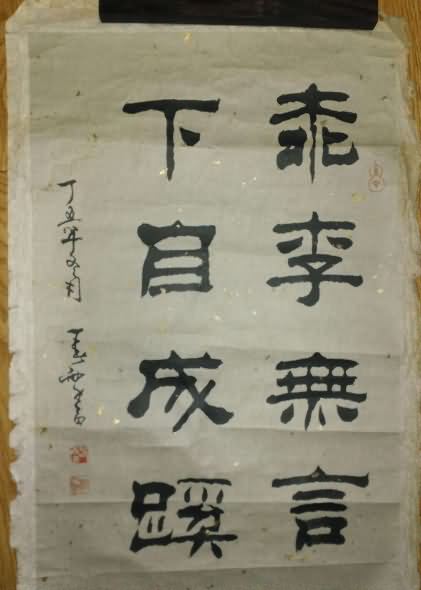 桃李無言
下自成蹊
丁丑年冬月 書